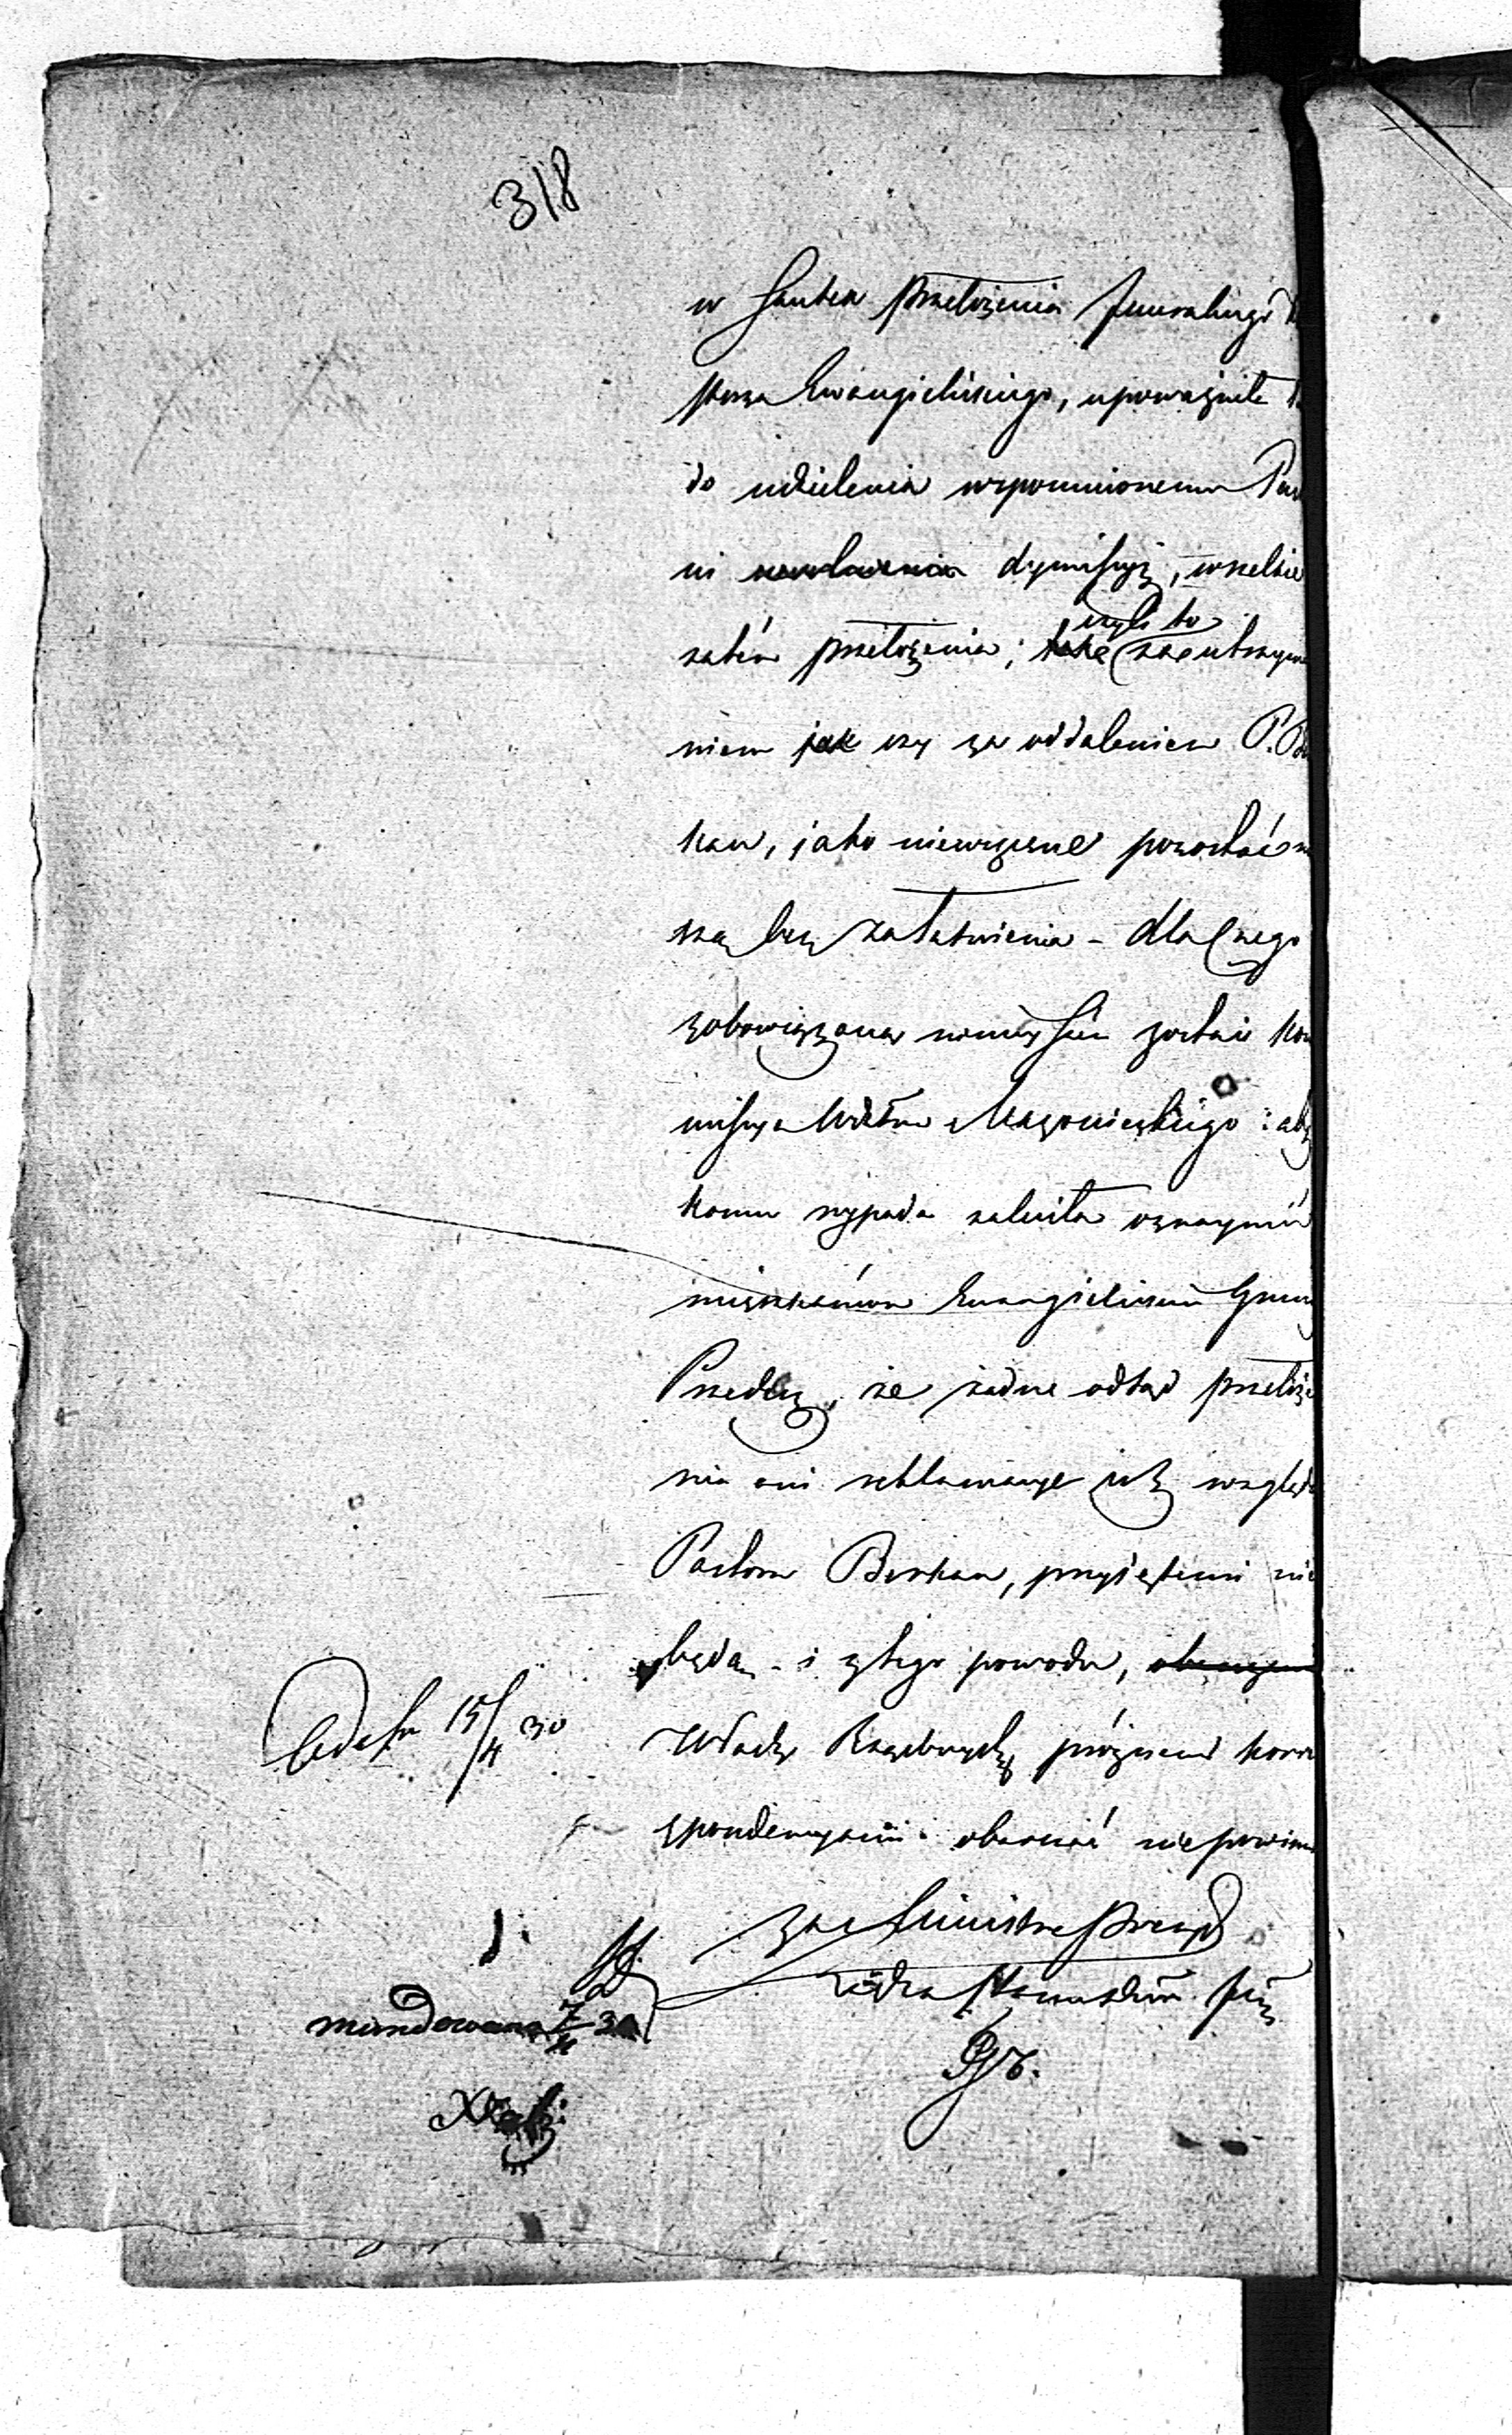 318
w skutek przełożenia Generalnego
storza Ewangielickiego, upoważniła
do udzielenia wspomnionemu Pas
wi uwolnienia dymissyi, wszelkie
zatém przełożenia;
czyli to
za utrzyma
niem jak czy za oddaleniem P. Be
kan, jako niewczesne pozostać m
szą bez załatwienia - dla czego
zobowiązaną ninieyszem zostaie Kom
missya Wdztwa Mazowieckiego: aby
komu wypada zaleciła oznaymić
mieszkańcom Ewangielickim Gminy
Przedecz, że żadne odtąd przełoże
nia ani reklamacye iuż względem
Pastora Berkan, przyiętemi nie
będą - i z tego powodu,
Władz Rządowych próżnemi korre
spondencyami obarczać niepowinni
15/4 30
za Ministra Prezyd
Radca Stanu
mundowano 7/4 30